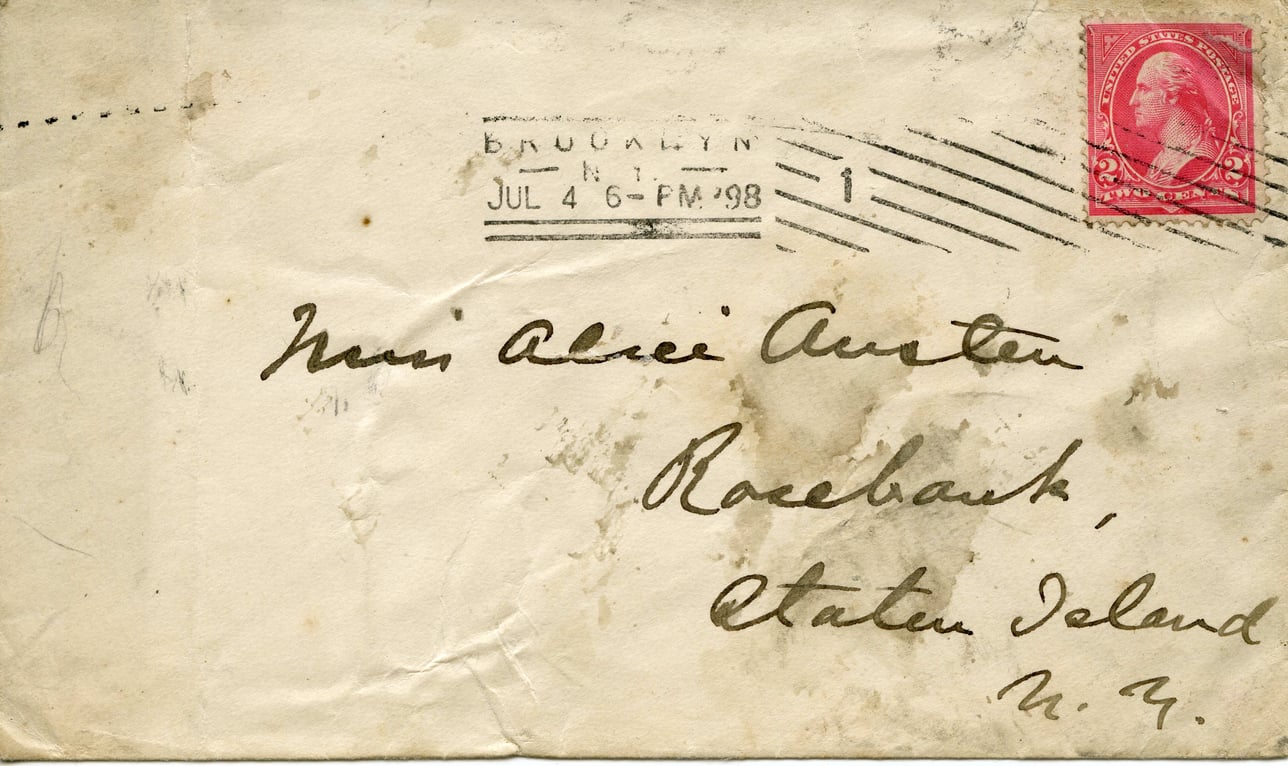 UNITED STATES POSTAGE
2 2
TWO CENTS
BROOKLYN
N.Y.
JUL 4 6-PM '98
1
Miss Alice Austen
Rosebank,
Staten Island
N. Y.